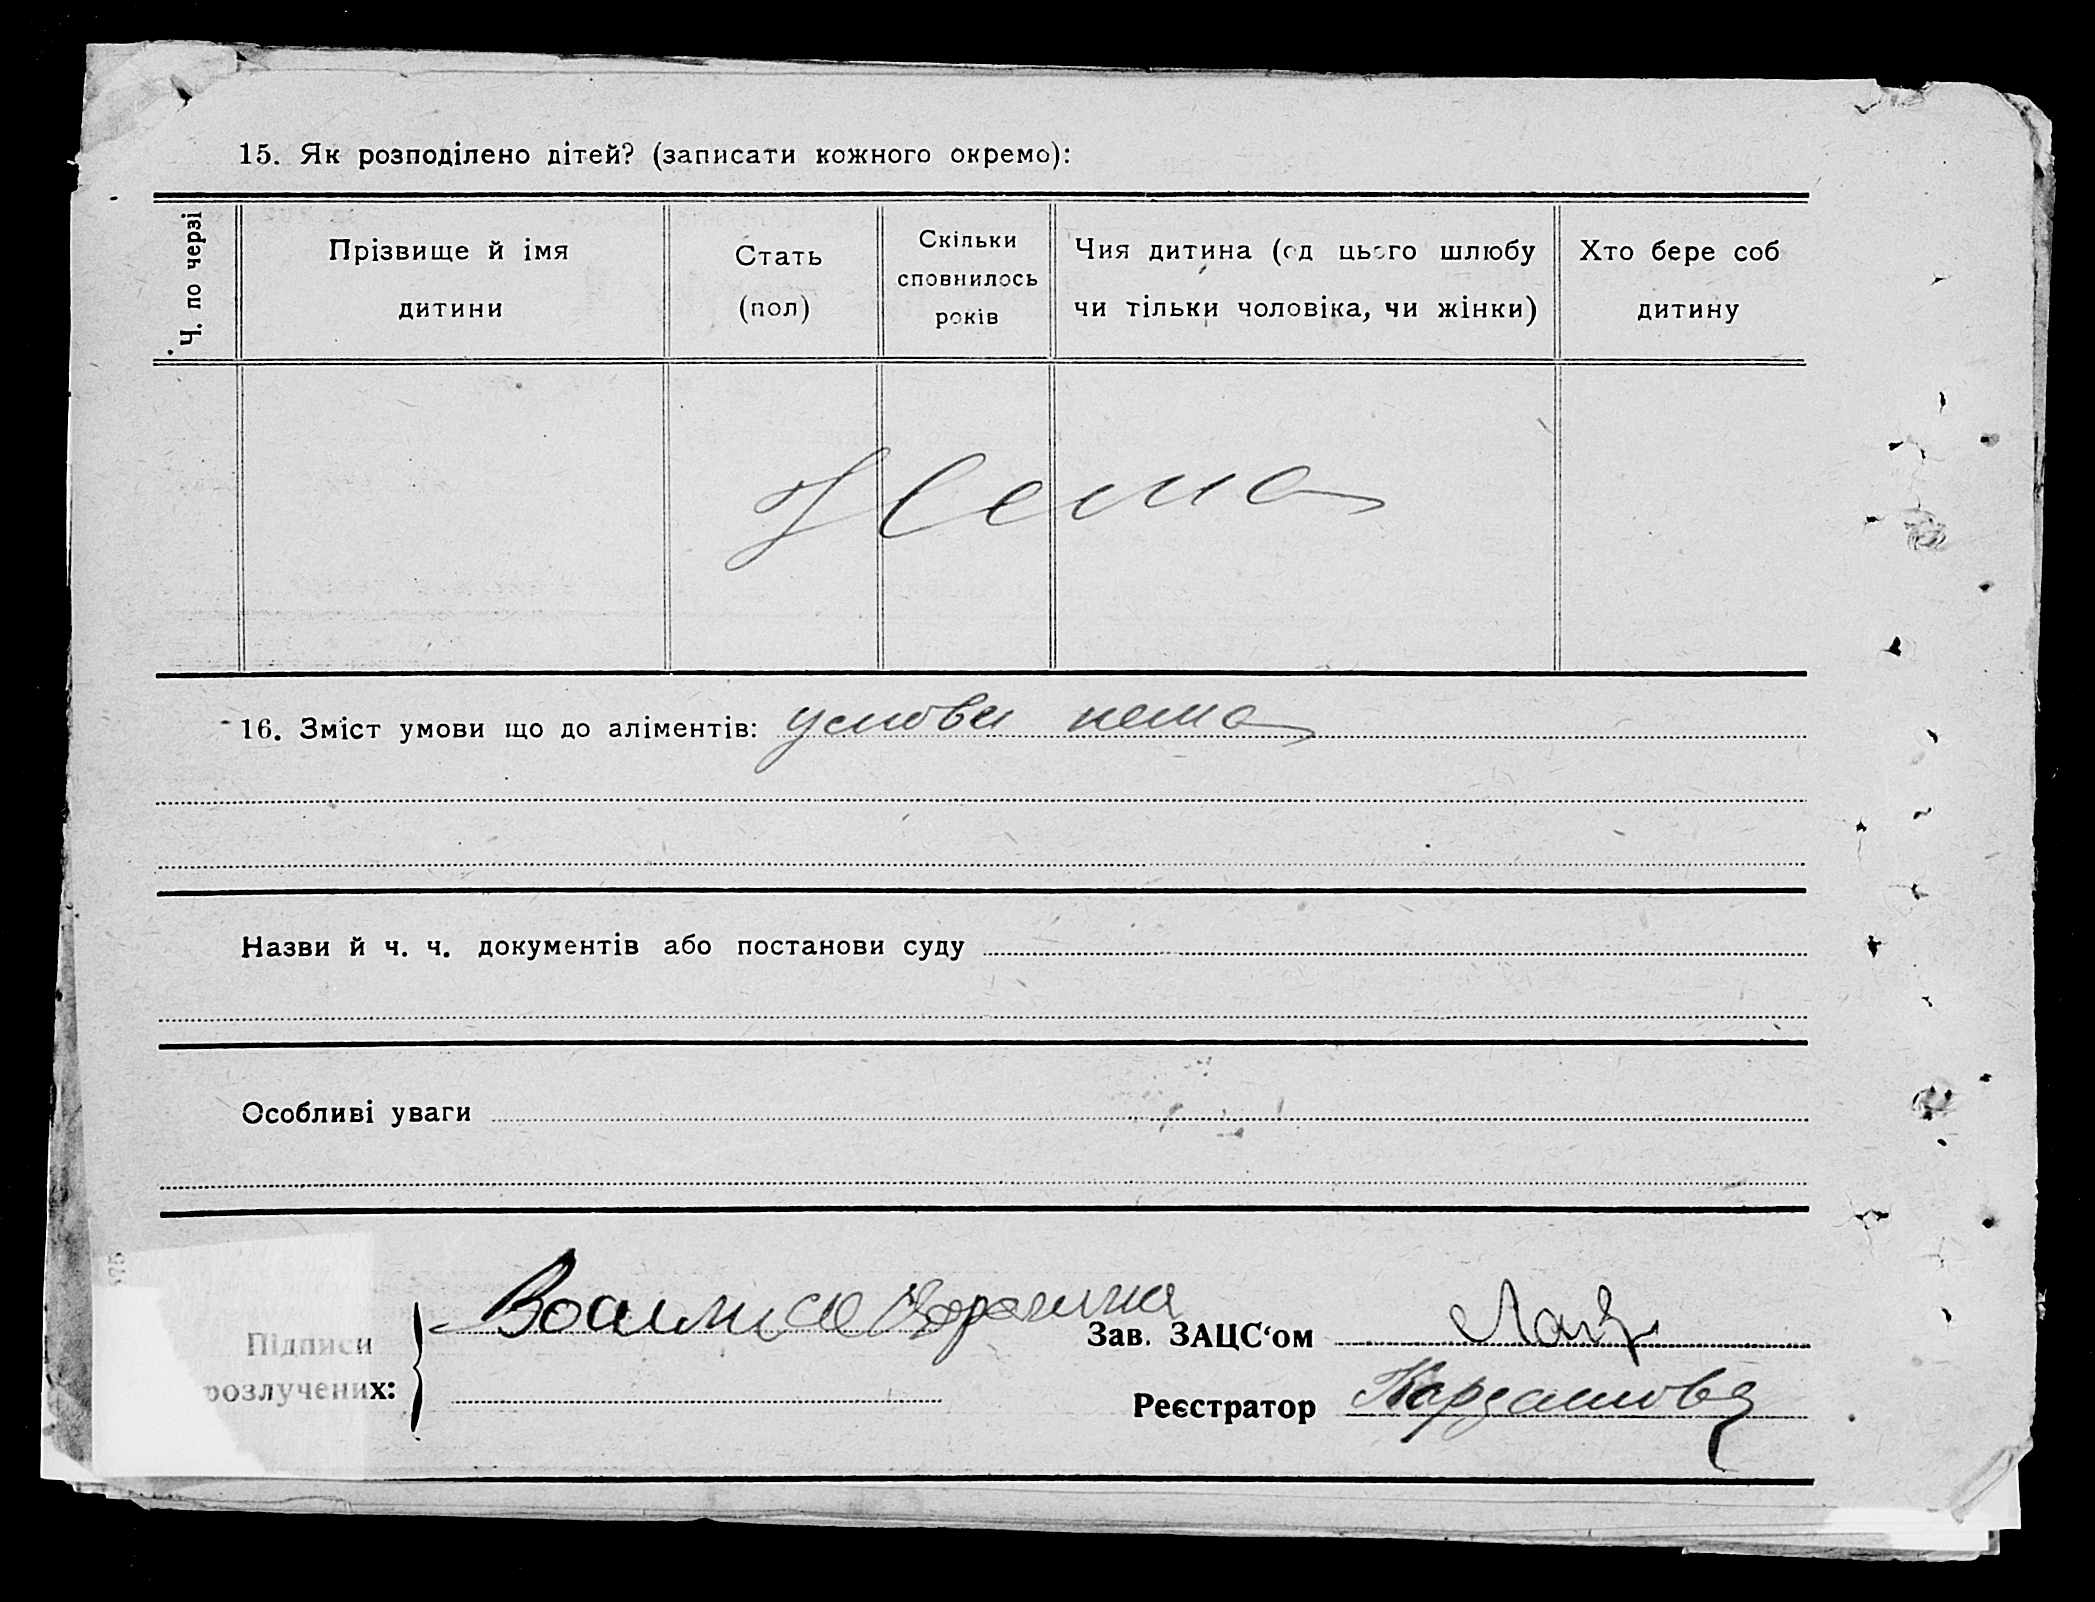 15. Як розподілено дітей? (записати кожного окремо):
Ч. по черзі
Прізвище й імя
дитини
Стать
(пол)
Скільки
сповнилось
років
Чия дитина (од цього шлюбу
чи тільки чоловіка, чи жінки)
Хто бере соб
дитину
Нема
16. Зміст умови що до аліментів: умови нема
Назви й ч. ч. документів або постанови суду
Особливі уваги
Підписи
розлучених:
Зав. ЗАЦС‘ом
Реєстратор Кардашова